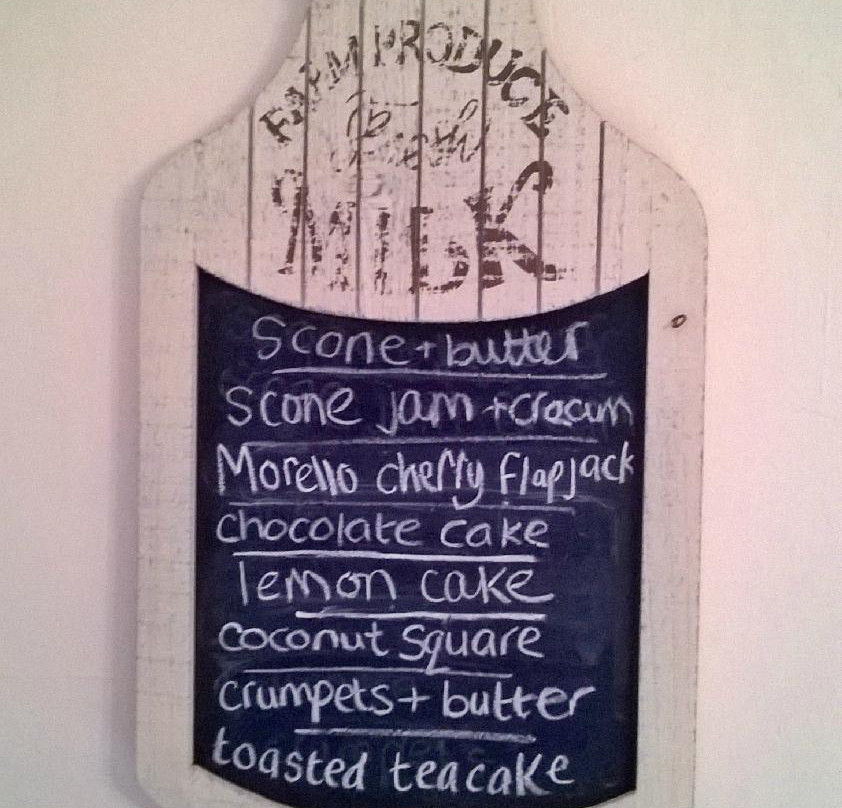 FARM PRODUCE
Fresh
MILK
Scone + butter
Scone jam + cream
Morello cherry flapjack
chocolate cake
lemon cake
coconut square
crumpets + butter
toasted teacake